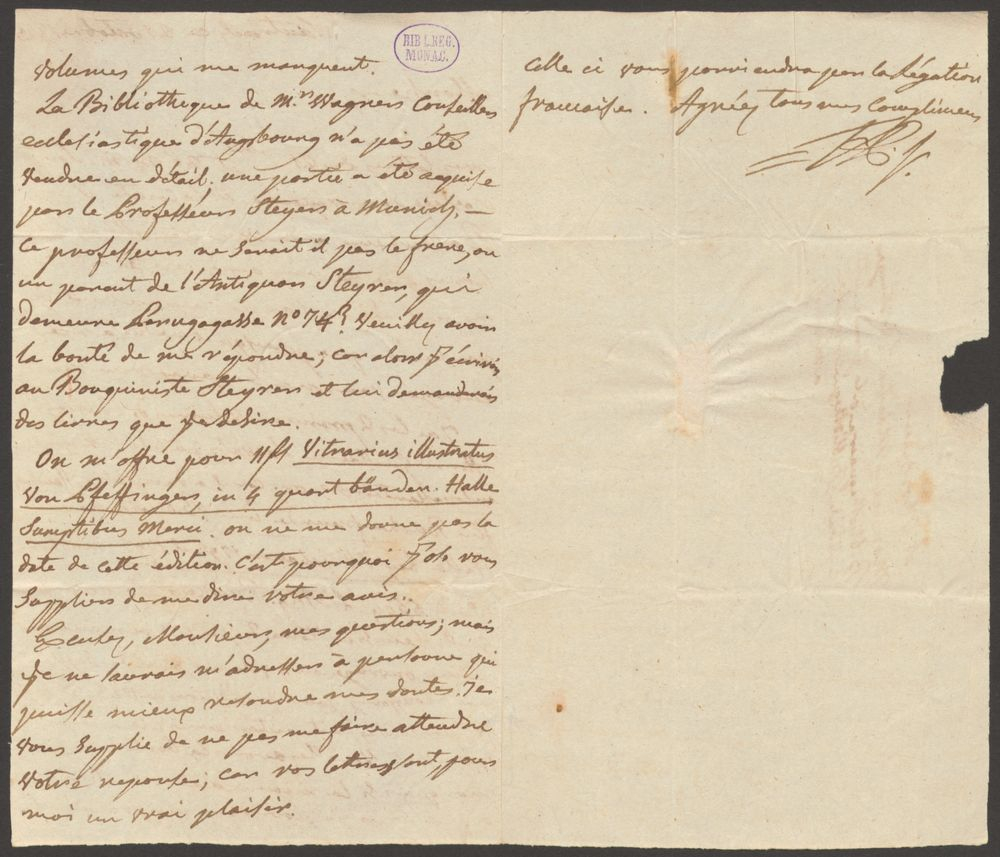 BIBL. REG.
MONAC.
volumes qui me manquent.
La Bibliotheque de Mr. Wagner Conseiller
ecclesiastique d'Augsbourg n'a pas été
vendue en détail; une partie a été acquise
par le Professeur Steyer à Munich. —
Ce professeur ne serait il pas le frere, ou
un parent de l'Antiquar Steyrer, qui
demeure No 74? Veuillez avoir
la bonté de me répondre; car alors j'écrirai
au Bouquiniste Steyrer et lui demanderais
des livres que je desire.
On m'offre pour 11fl Vitrarius illustratus
von Pfeffinger, in 4 quart bänden. Halle
Sumptibus Merci. on ne me donne pas la
date de cette édition. C'est pourquoi j'ose vous
supplier de me dire votre avis.
Excusez, Monsieur, mes questions; mais
je ne saurais m'adresser à personne qui
puisse mieux resoudre mes doutes. Je
vous supplie de ne pas me faire attendre
votre reponse; car vos lettres sont, pour
moi un vrai plaisir.
Celle ci vous parviendra par la Légation
francaise. Agréez tous mes complimens